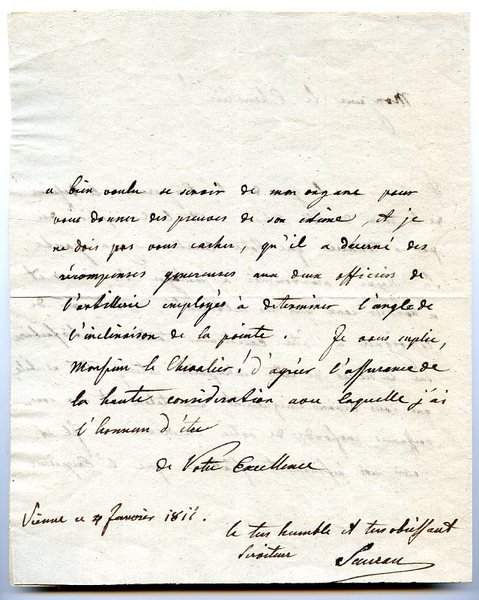 a bien voulu se servir de mon organe pour
vous donner des preuves de son estime, et je
ne dois pas vous cacher, qu'il a décerné des
récompenses genereuses aux deux officiers de
l'artillerie employés à determiner l'angle de
l'inclinaison de la pointe. Je vous suplie,
Monsieur le Chevalier! d'agréer l'assurance de
la haute considération avec laquelle j'ai
l'honneur d'être
de Votre Excellence
Vienne ce Janvier
le tres humble et tres obéissant
Serviteur Saurau